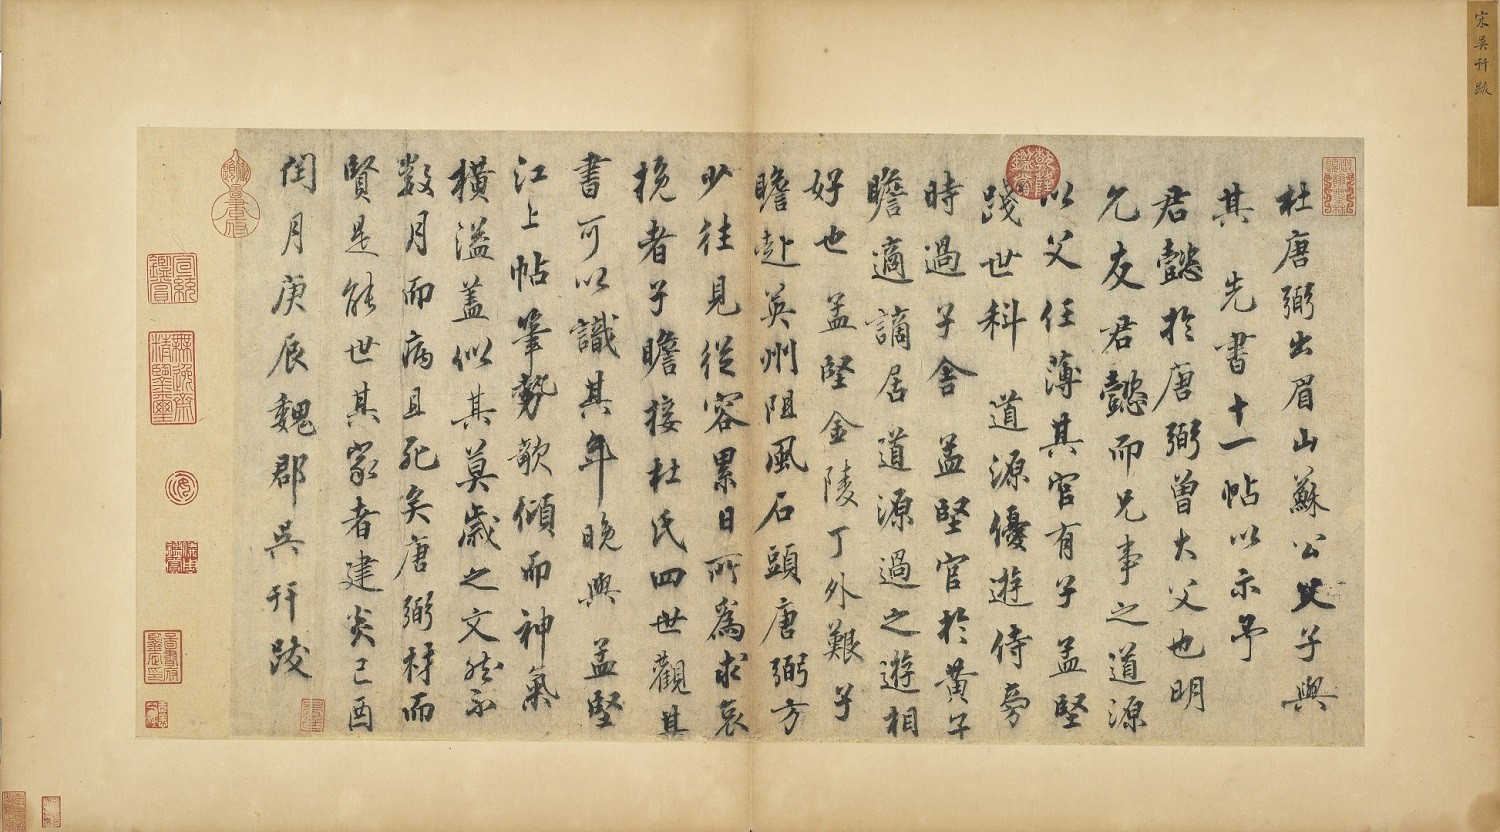 宋吳幵跋
杜唐弼出眉山蘇公父子與
其先書十一帖以示予
君懿於唐弼曾大父也明
允友君懿而兄事之道源
以父任薄其官有子孟堅
踐世科道源優遊侍旁
時過子舍孟堅官於黃子
瞻適謫居道源過之遊相
好也孟堅金陵丁外艱子
瞻赴英州阻風石頭唐弼方
少往見從容累日所為求哀
挽者子瞻接杜氏四世觀其
書可以識其年晚與孟堅
江上帖筆勢欹傾而神氣
橫溢蓋似其莫歲之文然不
數月而病且死矣唐弼材而
賢是能世其家者建炎己酉
閏月庚辰魏郡吳幵跋
乾隆鑑賞
宣統鑑賞
無逸齋精鑒璽